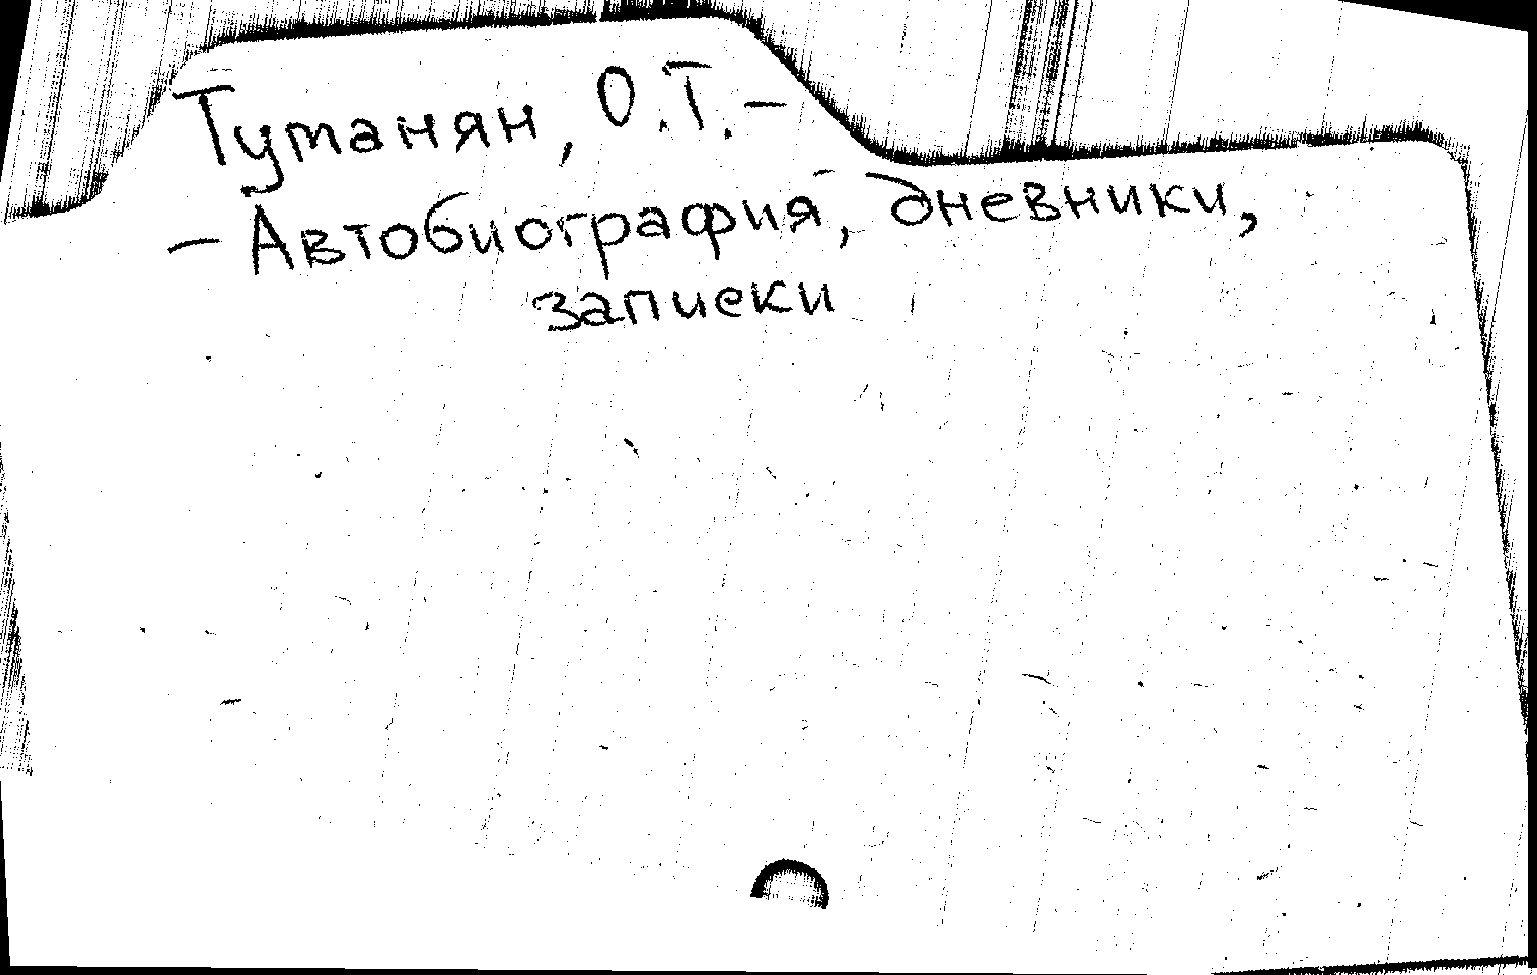 Туманян, О.Т. –
– Автобиография, дневники,
записки